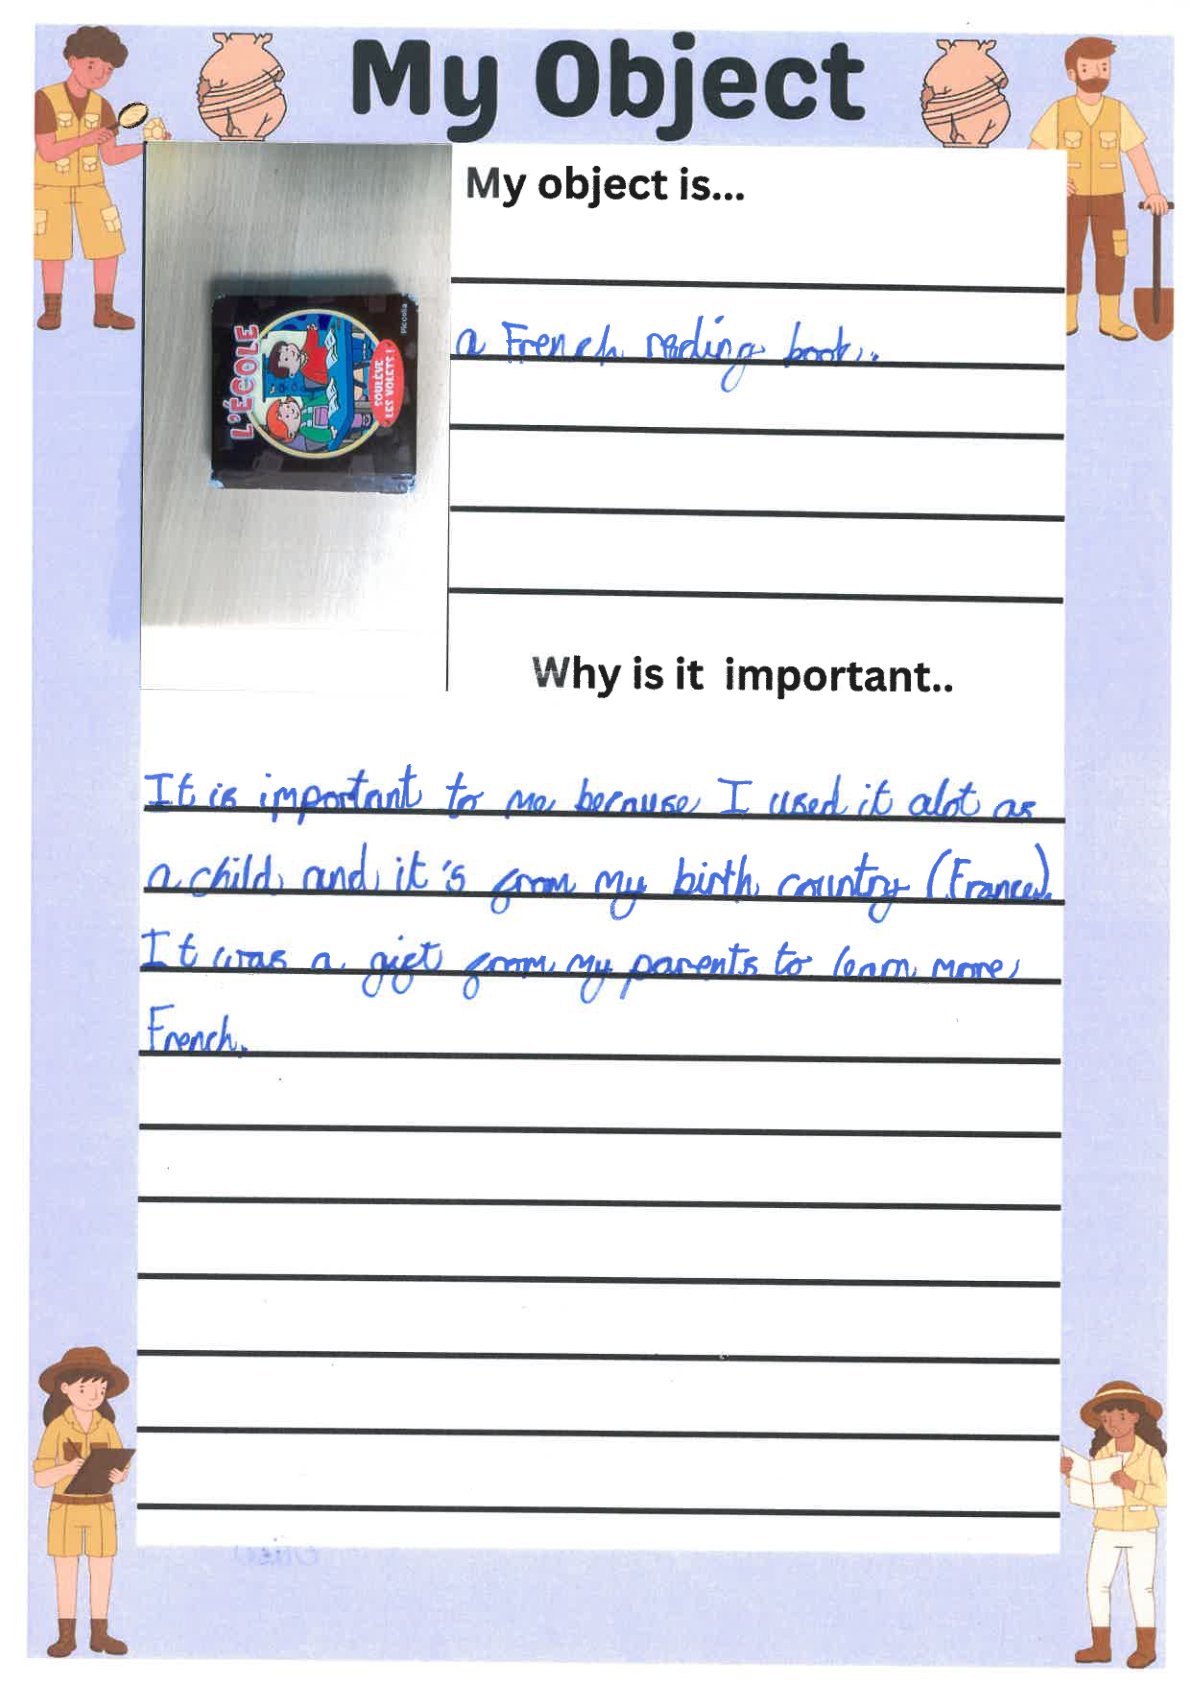 My Object
My object is...
L'ÉCOLE
SOULÈVE
LES VOLETS!
Piccolia
a French reading book.
Why is it important..
It is important to me because I used it alot as
a child and it's from my birth country (France).
It was a gift from my parents to learn more
French.